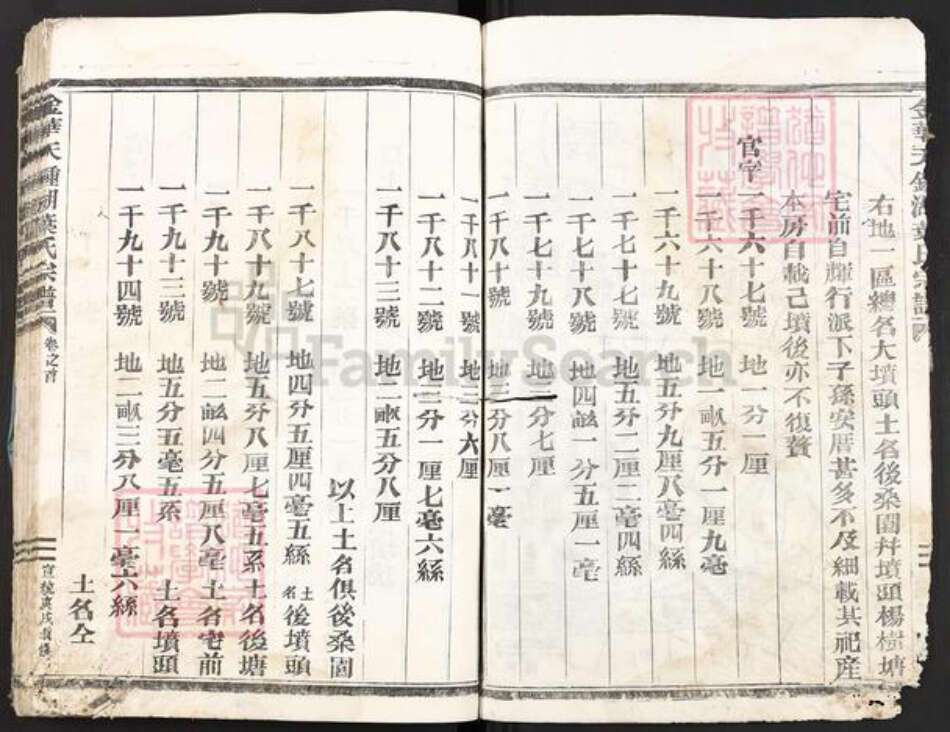 右地一區總名大墳頭土名後桑園幷墳頭楊樹塘
宅前自輝行派下子孫安厝甚多不及細載其祀產
本房自載己墳後亦不復贅
官字
一千六十七號 地一分一厘
一千六十八號 地一畝五分一厘九毫
一千六十九號 地五分九厘八毫四絲
一千七十號 地五分二厘二毫四絲
一千七十八號 地四畝一分五厘一毫
一千七十九號 地二分七厘
一千八十號 地三分八厘一毫
一千八十一號 地二分六厘
一千八十二號 地二分一厘七毫六絲
一千八十三號 地二畝五分八厘
以上土名俱後桑園
一千八十七號 地四分五厘四毫五絲 土名後墳頭
一千八十九號 地五分八厘七毫五系土名後塘
一千九十號 地二畝四分五厘八毫 土名宅前
一千九十三號 地五分五毫五系 土名墳頭
一千九十四號 地二畝三分八厘一毫六絲
土名仝
金華天鍾湖葉氏宗譜 卷之首
宣統庚戌重修
FamilySearch